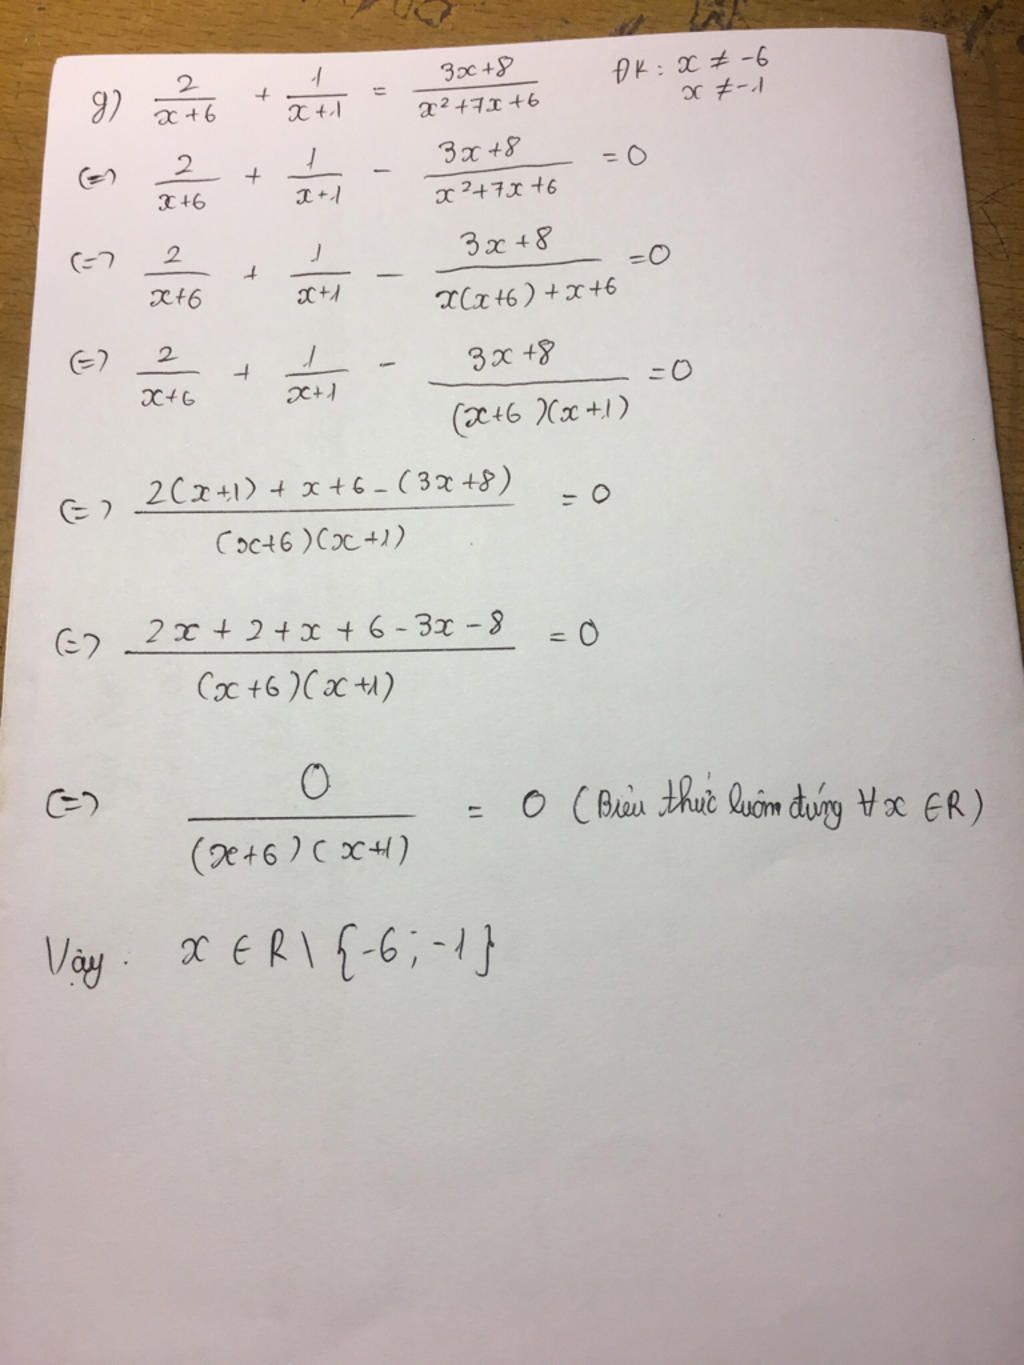 g) 2/(x+6) + 1/(x+1) = (3x+8)/(x²+7x+6) ĐK: x ≠ -6
x ≠ -1
(=) 2/(x+6) + 1/(x+1) - (3x+8)/(x²+7x+6) = 0
(=) 2/(x+6) + 1/(x+1) - (3x+8)/(x(x+6)+x+6) = 0
(=) 2/(x+6) + 1/(x+1) - (3x+8)/((x+6)(x+1)) = 0
(=) (2(x+1) + x + 6 - (3x+8))/((x+6)(x+1)) = 0
(=) (2x + 2 + x + 6 - 3x - 8)/((x+6)(x+1)) = 0
(=) 0/((x+6)(x+1)) = 0 (Biểu thức luôn đúng ∀x ∈ R)
Vậy. x ∈ R \ {-6; -1}